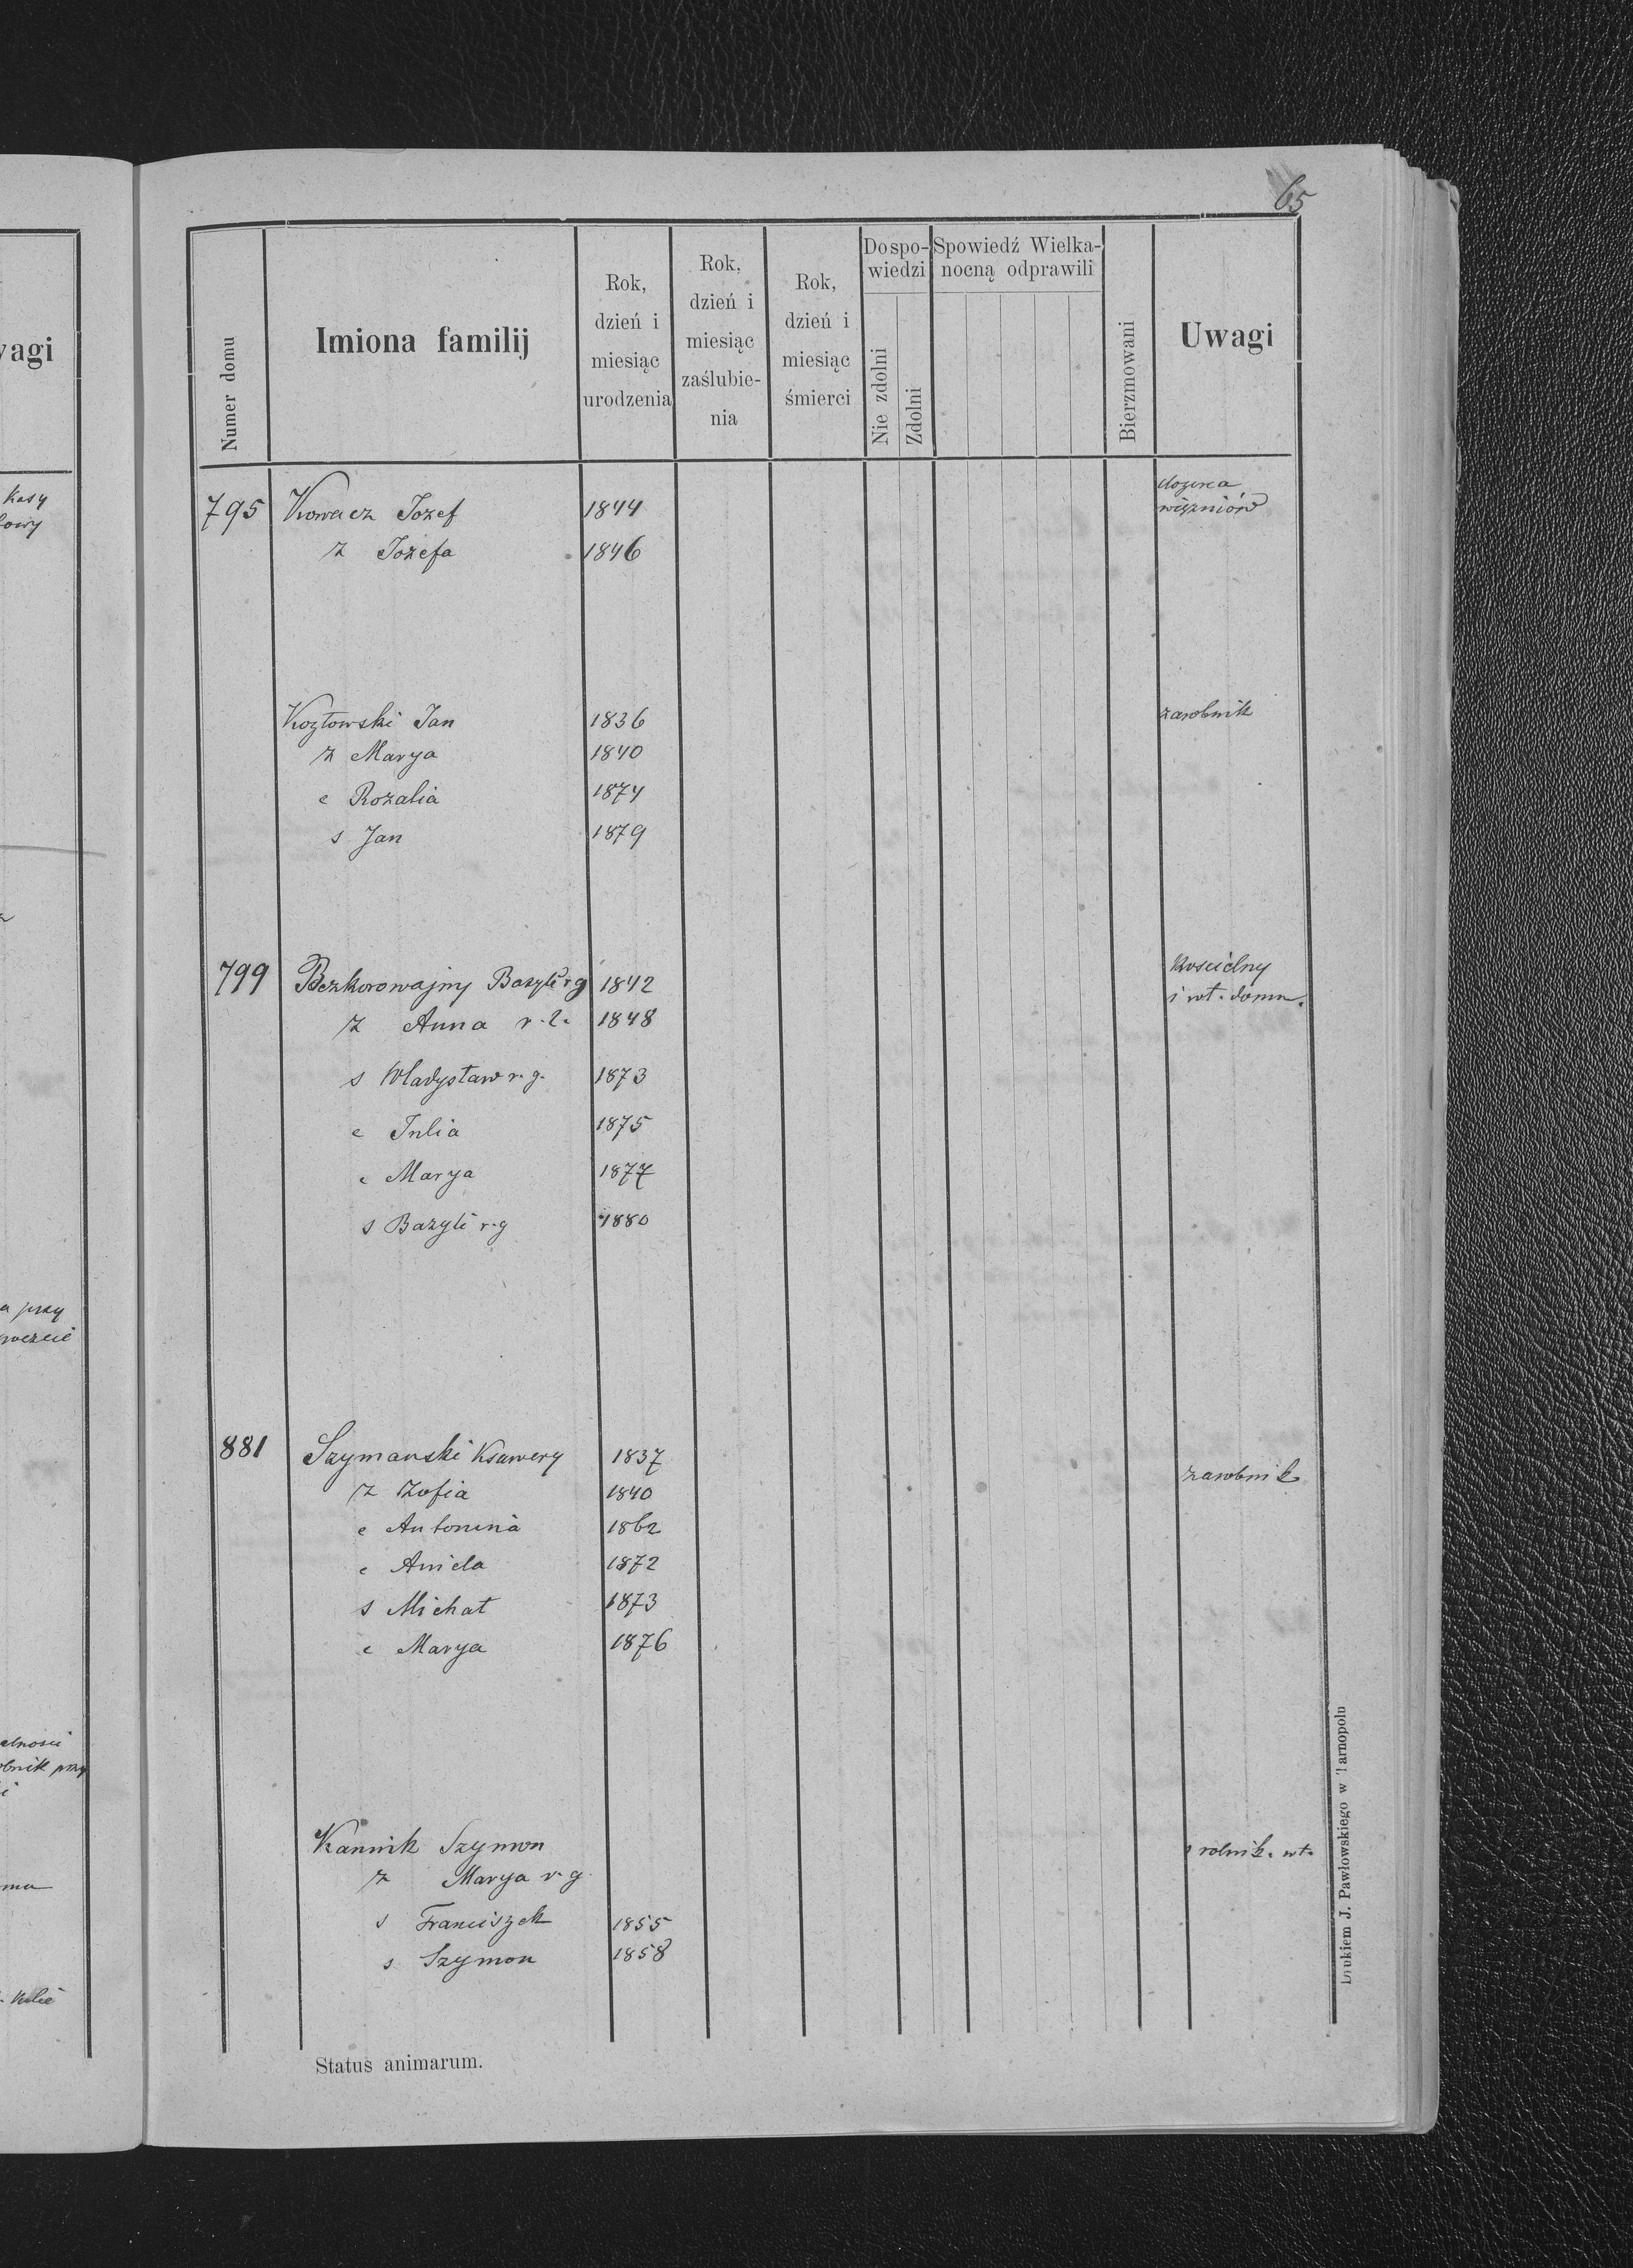 65
Numer domu
Imiona familij
Rok,
dzień i
miesiąc
urodzenia
Rok,
dzień i
miesiąc
zaślubie-
nia
Rok,
dzień i
miesiąc
śmierci
Do spo-
wiedzi
Nie zdolni
Zdolni
Spowiedź Wielka-
nocną odprawili
Bierzmowani
Uwagi
795 Kowacz Jozef 1844 dozorca
więzniów
ż Jozefa 1846
Kozłowski Jan 1836 zarobnik
ż Marya 1840
c Rozalia 1874
s Jan 1879
799 Bezkorowajny Bazyli r g 1842 Koscielny
i wł. domu.
ż Anna r. l. 1848
s Władysław r. g. 1873
c Julia 1875
c Marya 1877
s Bazyli r. g 1880
881 Szymanski Ksawery 1837 zarobnik
ż Zofia 1840
c Antonina 1862
c Aniela 1872
s Michał 1873
c Marya 1876
Kannik Szymon rolnik. wł.
ż Marya r. g.
s Franciszek 1855
s Szymon 1858
Status animarum.
Drukiem J. Pawłowskiego w Tarnopolu
vagi
kasy
łowy
a przy
elnosci
obnik przy